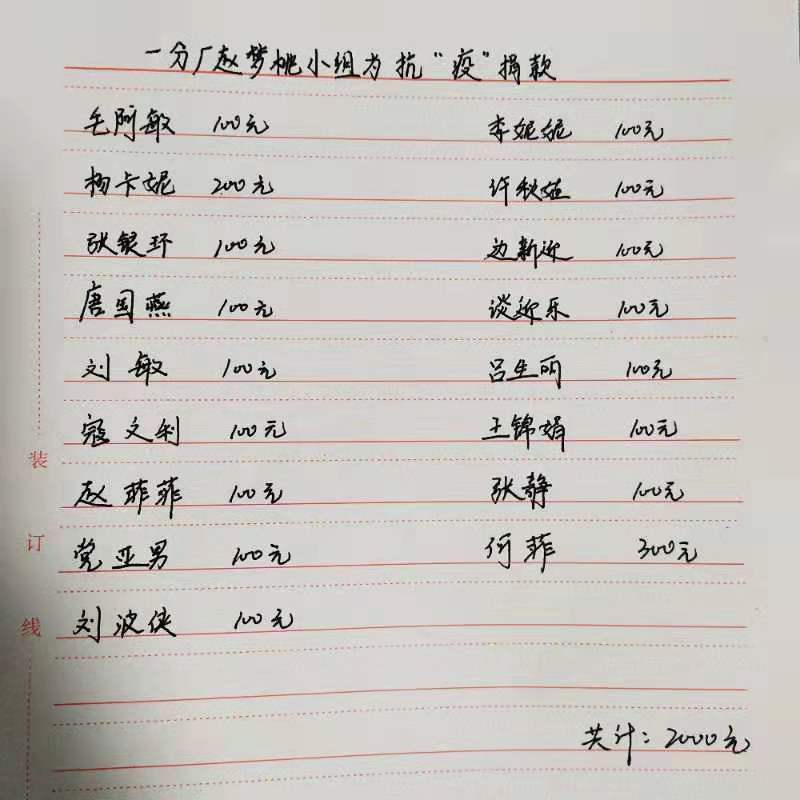 一分厂赵梦桃小组为抗“疫”捐款
毛阿敏 100元 李妮妮 100元
杨卡妮 200元 许秋娃 100元
张银环 100元 边新迎 100元
唐国燕 100元 谈迎乐 100元
刘敏 100元 吕生丽 100元
寇文利 100元 王锦娟 100元
赵菲菲 100元 张静 100元
党亚男 100元 何菲 300元
刘波侠 100元
共计：2000元
装订线